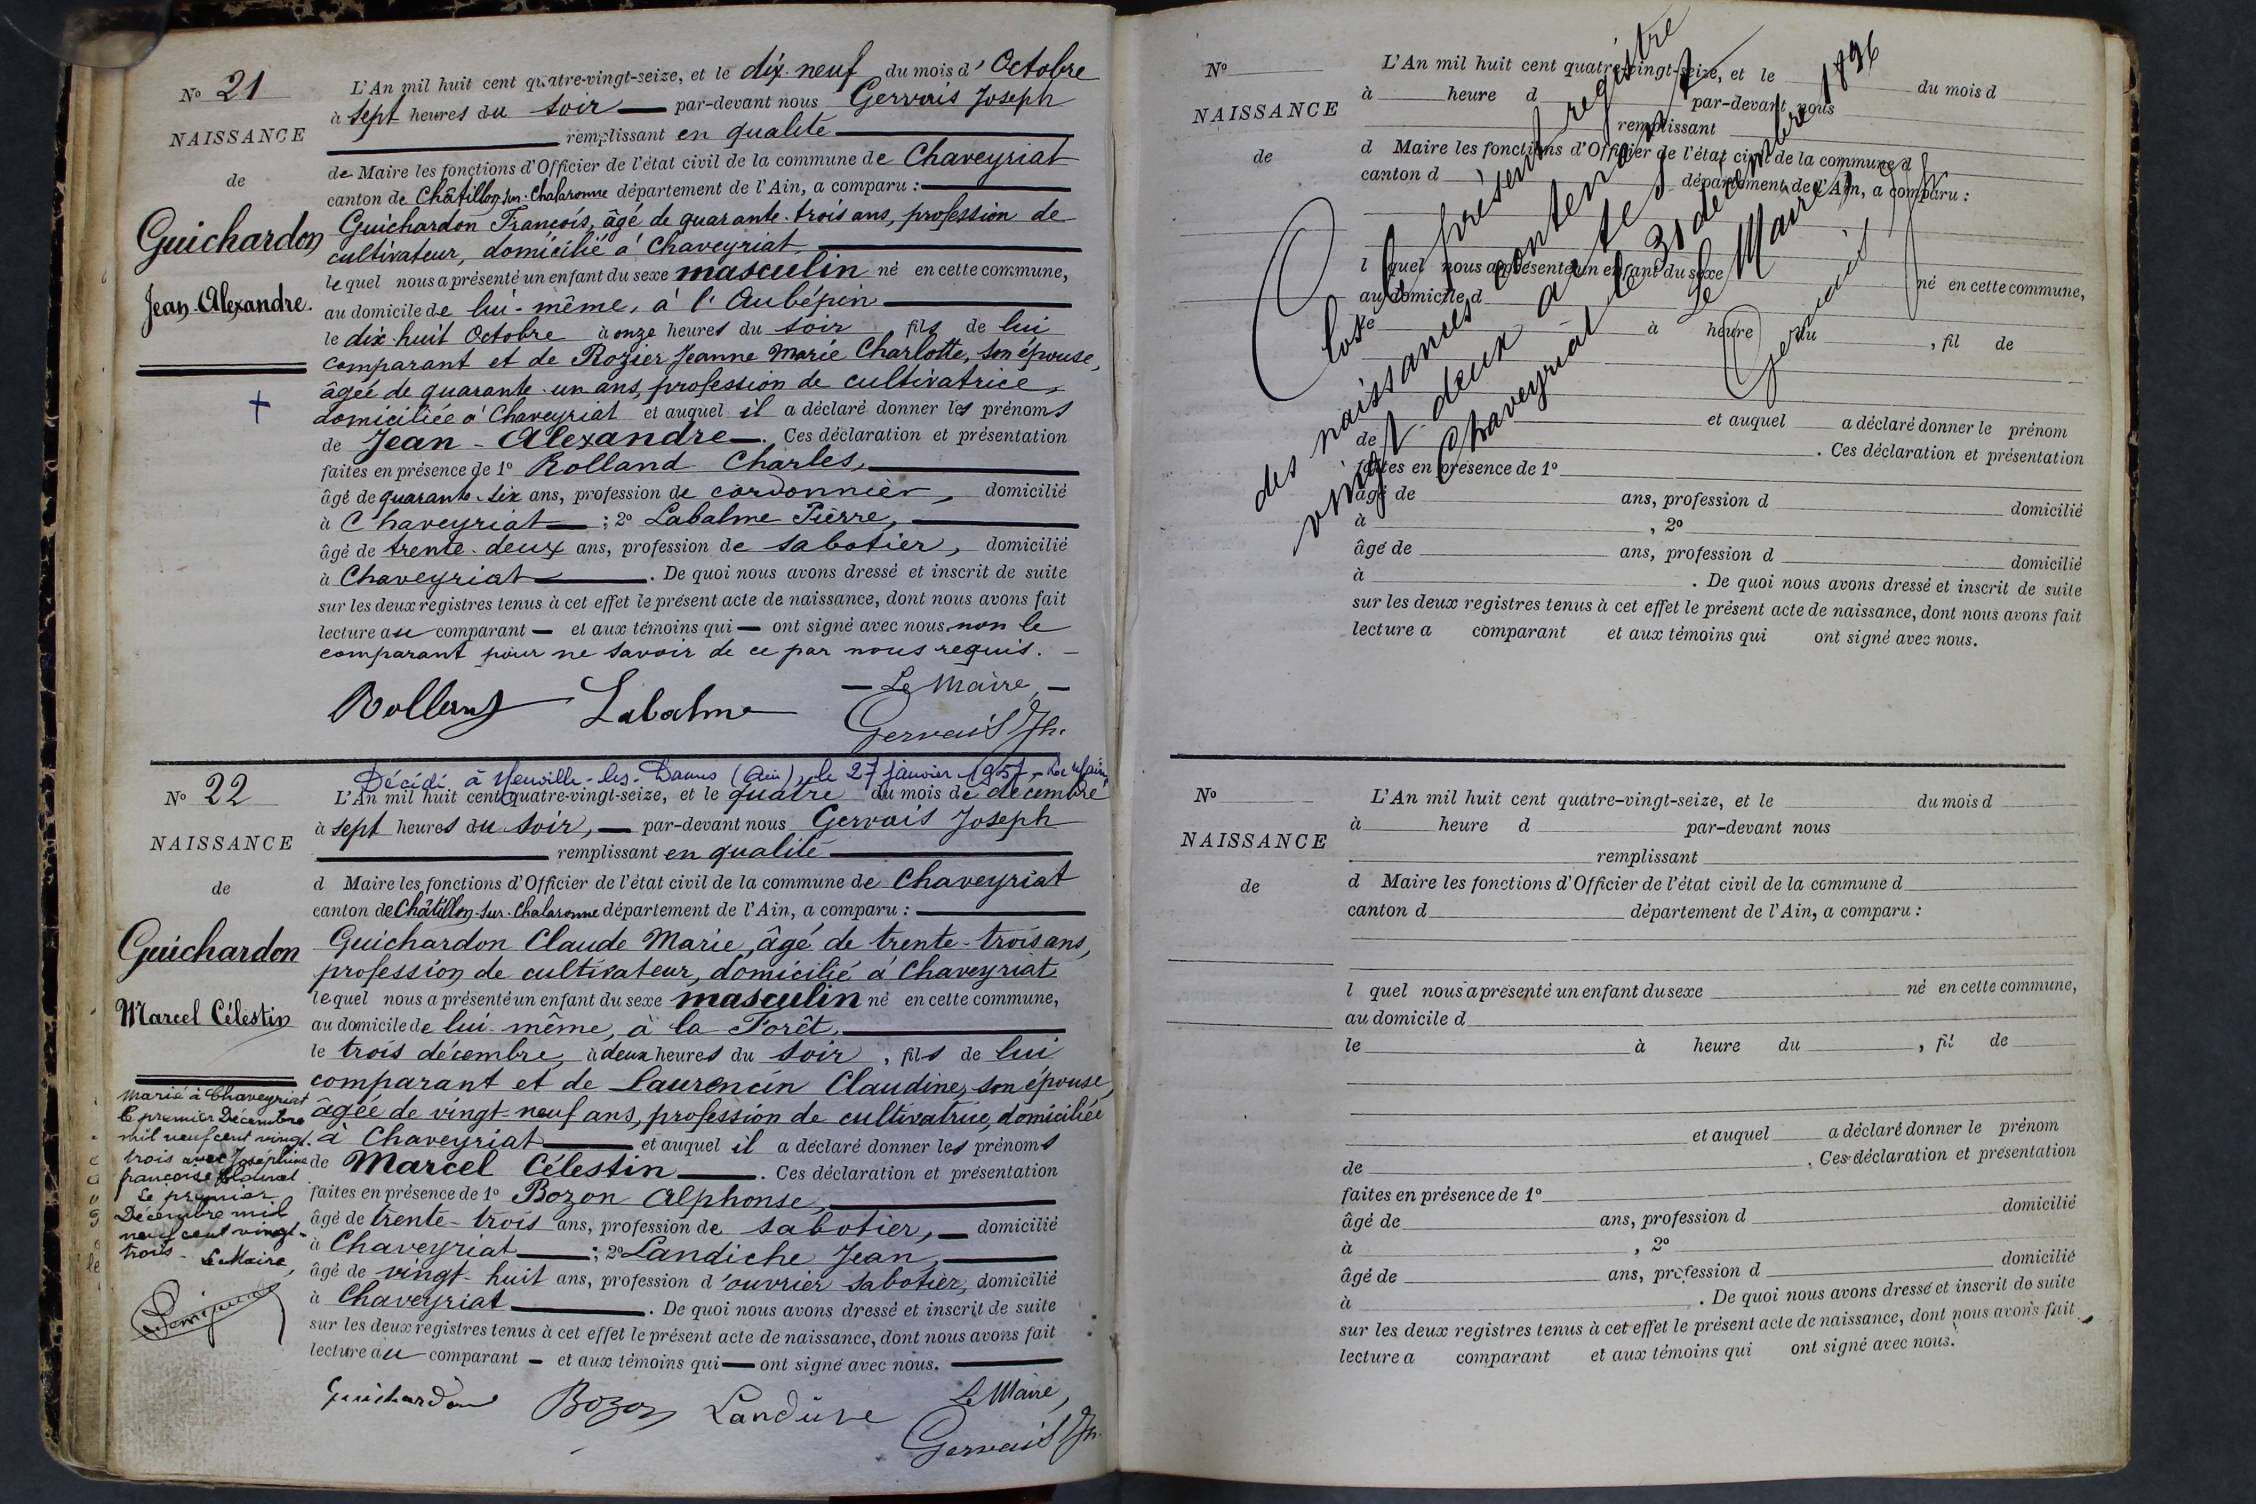 N° 21
NAISSANCE
de
Guichardon
Jean-Alexandre.
L'An mil huit cent quatre-vingt-seize, et le dix-neuf du mois d'Octobre
à sept heures du soir par-devant nous Gervais Joseph
remplissant en qualité
de Maire les fonctions d'Officier de l'état civil de la commune de Chaveyriat
canton de Châtillon-sur-Chalaronne département de l'Ain, a comparu :
Guichardon François, âgé de quarante-trois ans, profession de
cultivateur, domicilié à Chaveyriat
lequel nous a présenté un enfant du sexe masculin né en cette commune,
au domicile de lui-même, à l'Aubépin
le dix-huit Octobre à onze heures du soir, fils de lui
comparant et de Rozier Jeanne Marie Charlotte, son épouse,
âgée de quarante-un ans, profession de cultivatrice,
domiciliée à Chaveyriat et auquel il a déclaré donner les prénoms
de Jean-Alexandre. Ces déclaration et présentation
faites en présence de 1° Rolland Charles,
âgé de quarante-six ans, profession de cordonnier, domicilié
à Chaveyriat ; 2° Labalme Pierre,
âgé de trente-deux ans, profession de sabotier, domicilié
à Chaveyriat. De quoi nous avons dressé et inscrit de suite
sur les deux registres tenus à cet effet le présent acte de naissance, dont nous avons fait
lecture au comparant et aux témoins qui ont signé avec nous, non le
comparant pour ne savoir de ce par nous requis.
Rolland Labalme Le Maire,
Gervais Jh.
Décédé à Neuville-les-Dames (Ain), le 27 janvier 1957. Le Maire
N° 22
NAISSANCE
de
Guichardon
Marcel Célestin
Marié à Chaveyriat
le premier Décembre
mil neuf cent vingt-
trois avec Joséphine
françoise
Le premier
Décembre mil
neuf cent vingt-
trois. Le Maire,
L'An mil huit cent quatre-vingt-seize, et le quatre du mois de décembre
à sept heures du soir, par-devant nous Gervais Joseph
remplissant en qualité
d Maire les fonctions d'Officier de l'état civil de la commune de Chaveyriat
canton de Châtillon-sur-Chalaronne département de l'Ain, a comparu :
Guichardon Claude Marie, âgé de trente-trois ans,
profession de cultivateur, domicilié à Chaveyriat
lequel nous a présenté un enfant du sexe masculin né en cette commune,
au domicile de lui-même, à la Forêt,
le trois décembre, à deux heures du soir, fils de lui
comparant et de Laurencin Claudine, son épouse,
âgée de vingt-neuf ans, profession de cultivatrice, domiciliée
à Chaveyriat et auquel il a déclaré donner les prénoms
de Marcel Célestin. Ces déclaration et présentation
faites en présence de 1° Bozon Alphonse,
âgé de trente-trois ans, profession de sabotier, domicilié
à Chaveyriat ; 2° Landiche Jean,
âgé de vingt-huit ans, profession d'ouvrier sabotier, domicilié
à Chaveyriat. De quoi nous avons dressé et inscrit de suite
sur les deux registres tenus à cet effet le présent acte de naissance, dont nous avons fait
lecture au comparant et aux témoins qui ont signé avec nous.
Guichardon Bozon Le Maire,
Gervais Jh.
N°
NAISSANCE
de
L'An mil huit cent quatre-vingt-seize, et le du mois d
à heure d par-devant nous
remplissant
d Maire les fonctions d'Officier de l'état civil de la commune d
canton d département de l'Ain, a comparu :
l quel nous a présenté un enfant du sexe né en cette commune,
au domicile d
le à heure du , fil de
et auquel a déclaré donner le prénom
de . Ces déclaration et présentation
faites en présence de 1°
âgé de ans, profession d domicilié
à , 2°
âgé de ans, profession d domicilié
à . De quoi nous avons dressé et inscrit de suite
sur les deux registres tenus à cet effet le présent acte de naissance, dont nous avons fait
lecture a comparant et aux témoins qui ont signé avec nous.
Clos le présent registre
des naissances contenant
vingt-deux actes
Chaveyriat le 31 décembre 1896
Le Maire,
Gervais Jh
N°
NAISSANCE
de
L'An mil huit cent quatre-vingt-seize, et le du mois d
à heure d par-devant nous
remplissant
d Maire les fonctions d'Officier de l'état civil de la commune d
canton d département de l'Ain, a comparu :
l quel nous a présenté un enfant du sexe né en cette commune,
au domicile d
le à heure du , fil de
et auquel a déclaré donner le prénom
de . Ces déclaration et présentation
faites en présence de 1°
âgé de ans, profession d domicilié
à , 2°
âgé de ans, profession d domicilié
à . De quoi nous avons dressé et inscrit de suite
sur les deux registres tenus à cet effet le présent acte de naissance, dont nous avons fait
lecture a comparant et aux témoins qui ont signé avec nous.